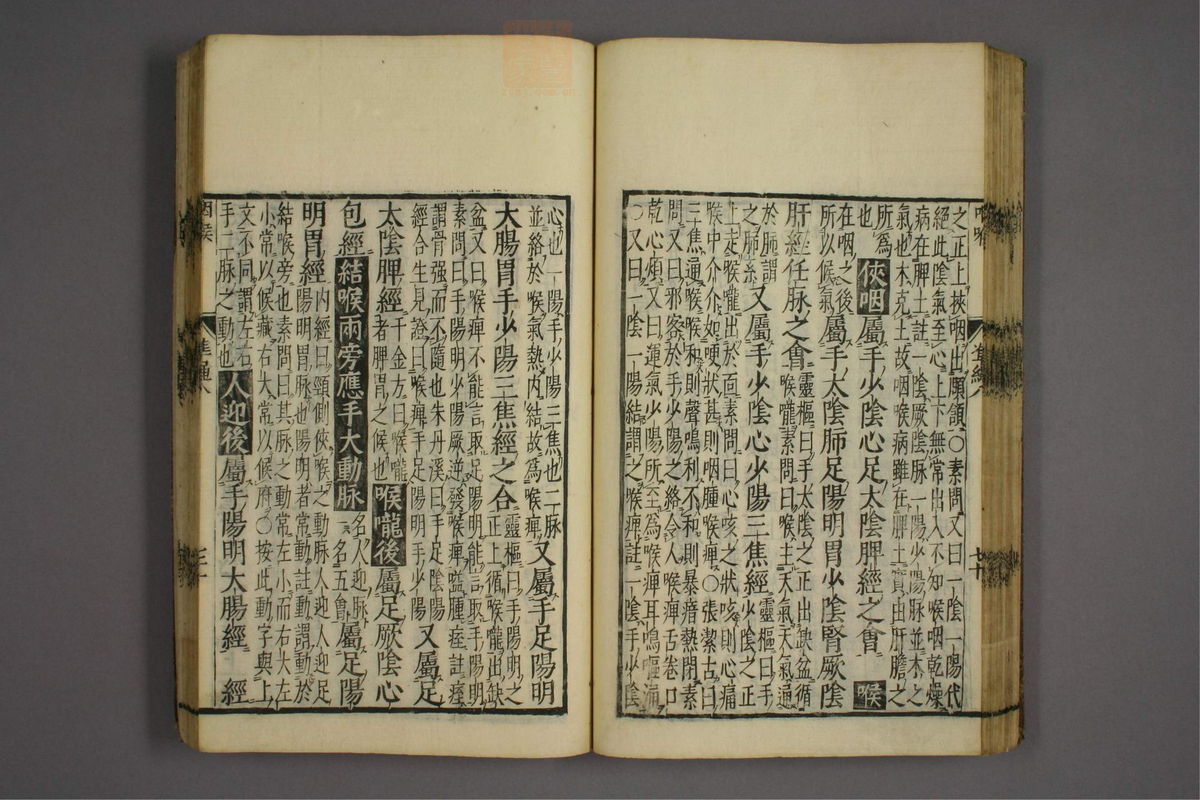 之正上挾咽出頤頷○素問又曰一陰一陽代
絕此陰氣至心上下無常出入不知喉咽乾燥
病在脾土註一陰厥陰脉一陽少陽脉並木之
氣也木克土故咽喉病雖在脾土實由肝膽之
所為
也
俠咽
屬手少陰心足太陰脾經之會
喉
在咽之後
屬手太陰肺足陽明胃少陰腎厥陰
所以候氣
肝經任脉之會
靈樞曰手太陰之正出缺盆循
喉嚨素問曰喉主天氣天氣通
於肺謂
之肺系
又屬手少陰心少陽三焦經
靈樞曰手
少陰之正
上走喉嚨出於面素問曰心咳之狀咳則心痛
喉中介介如哽狀甚則咽腫喉痺○張潔古曰
三焦通喉喉和則聲鳴利不和則暴瘖熱閉素
問又曰邪客於手少陽之絡令人喉痺舌卷口
乾心煩又曰運氣少陽所至為喉痺耳鳴嘔涌
○又曰一陰一陽結謂之喉痺註一陰手少陰
心也一陽手少陽三焦也二脉
並絡於喉氣熱內結故為喉痺
又屬手足陽明
大腸胃手少陽三焦經之合
靈樞曰手陽明之
正上循喉嚨出缺
盆又曰喉痺不能言取足陽明能言取手陽明
素問曰手陽明少陽厥逆發喉痺嗌腫痓註痓
謂骨强而不隨也朱丹溪曰手足陰陽
經合生見證曰喉痺手足陽明手少陽
又屬足
太陰脾經
千金方曰喉嚨
者脾胃之候也
喉嚨後
屬足厥陰心
包經
結喉兩旁應手大動脉
名人迎脉
一名五會
屬足陽
明胃經
內經曰頸側俠喉之動脉人迎人迎足
陽明胃脉也陽明者常動註動謂動於
結喉旁也素問曰其脉之動常左小而右大左
小常以候藏右大常以候府○按此動字與上
文不同謂左右
手二脉之動也
人迎後
屬手陽明大腸經
經